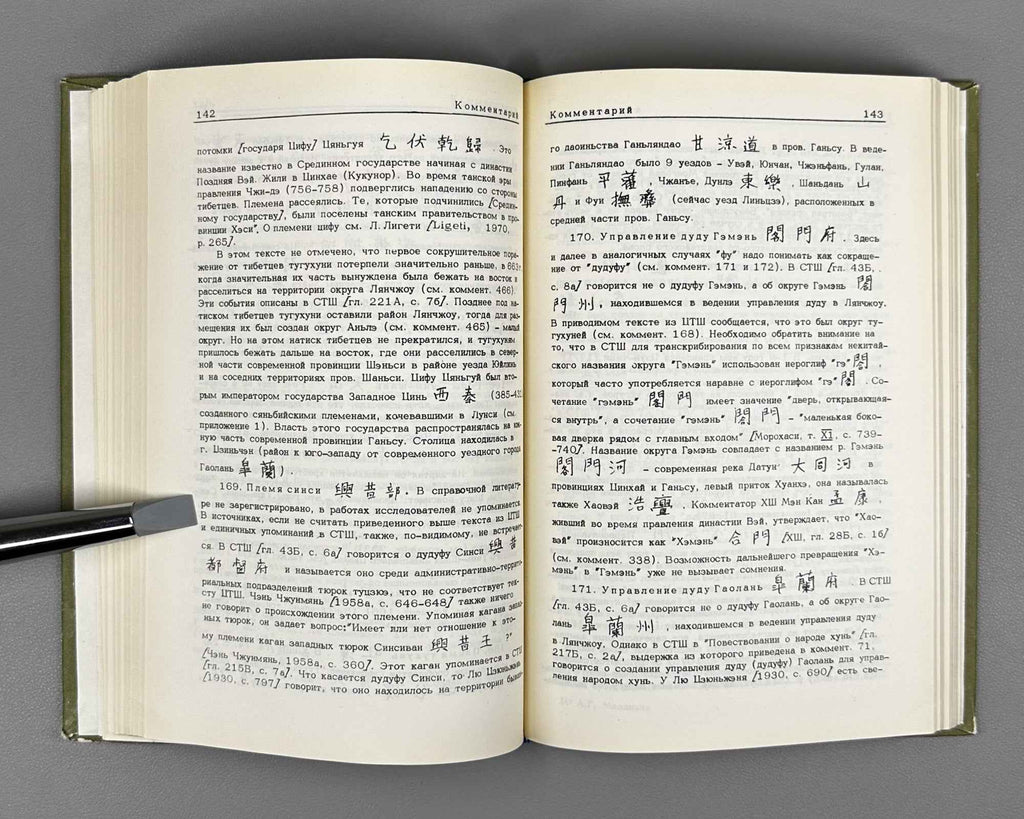 142
Комментарий
потомки [государя Цифу] Цяньгуя 乞伏乾歸. Это
название известно в Срединном государстве начиная с династии
Поздняя Вэй. Жили в Цинхае (Кукунор). Во время танской эры
правления Чжи-дэ (756-758) подверглись нападению со стороны
тибетцев. Племена рассеялись. Те, которые подчинились [Средин-
ному государству], были поселены танским правительством в про-
винции Хэси". О племени цифу см. Л. Лигети [Ligeti, 1970,
p. 265].
В этом тексте не отмечено, что первое сокрушительное пора-
жение от тибетцев тугухуни потерпели значительно раньше, в 663 г.
когда значительная их часть вынуждена была бежать на восток и
расселиться на территории округа Лянчжоу (см. коммент. 466).
Эти события описаны в СТШ [гл. 221А, с. 7б]. Позднее под на-
тиском тибетцев тугухуни оставили район Лянчжоу, тогда для раз-
мещения их был создан округ Аньлэ (см. коммент. 465) - малый
округ. Но на этом натиск тибетцев не прекратился, и тугухуням
пришлось бежать дальше на восток, где они расселились в север-
ной части современной провинции Шэньси в районе уезда Юйлинь
и на соседних территориях пров. Шаньси. Цифу Цяньгуй был вто-
рым императором государства Западное Цинь 西秦 (385-431
созданного сяньбийскими племенами, кочевавшими в Лунси (см.
приложение 1). Власть этого государства распространялась на юж-
ную часть современной провинции Ганьсу. Столица находилась в
г. Цзиньчэн (район к юго-западу от современного уездного города
Гаолань 皐蘭).
169. Племя синси 興昔部. В справочной литерату-
ре не зарегистрировано, в работах исследователей не упоминается.
В источниках, если не считать приведенного выше текста из ЦТШ
и единичных упоминаний в СТШ, также, по-видимому, не встречает-
ся. В СТШ [гл. 43Б, с. 6а] говорится о дудуфу Синси 興昔
都督府 и называется оно среди административно-террито-
риальных подразделений тюрок туцзюэ, что не соответствует тек-
сту ЦТШ. Чэнь Чжунмянь [1958а, с. 646-648] также ничего
не говорит о происхождении этого племени. Упоминая кагана запад-
ных тюрок, он задает вопрос: "Имеет ли нет отношение к это-
му племени каган западных тюрок Синсиван 興昔王 ?"
[Чэнь Чжунмянь, 1958а, с. 360]. Этот каган упоминается в СТШ
[гл. 215В, с. 7а]. Что касается дудуфу Синси, то Лю Цзюньжэнь
[1930, с. 797] говорит, что оно находилось на территории бывше-
Комментарий
143
го даоиньства Ганьляндао 甘涼道 в пров. Ганьсу. В веде-
нии Ганьляндао было 9 уездов - Увэй, Юнчан, Чжэньфань, Гулан,
Пинфань 平蕃, Чжанъе, Дунлэ 東樂, Шаньдань 山
丹 и Фуи 撫彝 (сейчас уезд Линьцзэ), расположенных в
средней части пров. Ганьсу.
170. Управление дуду Гэмэнь 閤門府. Здесь
и далее в аналогичных случаях "фу" надо понимать как сокраще-
ние от "дудуфу" (см. коммент. 171 и 172). В СТШ [гл. 43Б,
с. 8а] говорится не о дудуфу Гэмэнь, а об округе Гэмэнь 閤
門州, находившемся в ведении управления дуду в Лянчжоу.
В приводимом тексте из ЦТШ сообщается, что это был округ ту-
гухуней (см. коммент. 168). Необходимо обратить внимание на
то, что в СТШ для транскрибирования по всем признакам некитай-
ского названия округа "Гэмэнь" использован иероглиф "гэ"
который часто употребляется наравне с иероглифом "гэ" . Со-
четание "гэмэнь" имеет значение "дверь, открывающая-
ся внутрь", а сочетание "гэмэнь" - "маленькая боко-
вая дверка рядом с главным входом" [Морохаси, т. XI, с. 739-
-740]. Название округа Гэмэнь совпадает с названием р. Гэмэнь
閤門河 - современная река Датун 大同河 в
провинциях Цинхай и Ганьсу, левый приток Хуанхэ, она называлась
также Хаовэй 浩亹. Комментатор ХШ Мэн Кан 孟康,
живший во время правления династии Вэй, утверждает, что "Хао-
вэй" произносится как "Хэмэнь" 合門 [ХШ, гл. 28Б, с. 1б]
(см. коммент. 338). Возможность дальнейшего превращения "Хэ-
мэнь" в "Гэмэнь" уже не вызывает сомнения.
171. Управление дуду Гаолань 皐蘭府. В СТШ
[гл. 43Б, с. 6а] говорится не о дудуфу Гаолань, а об округе Гао-
лань 皐蘭州, находившемся в ведении управления дуду
в Лянчжоу. Однако в СТШ в "Повествовании о народе хунь" [гл.
217Б, с. 2а], выдержка из которого приведена в коммент. 71,
говорится о создании управления дуду (дудуфу) Гаолань для управ-
ления народом хунь. У Лю Цзюньжэня [1930, с. 690] есть све-